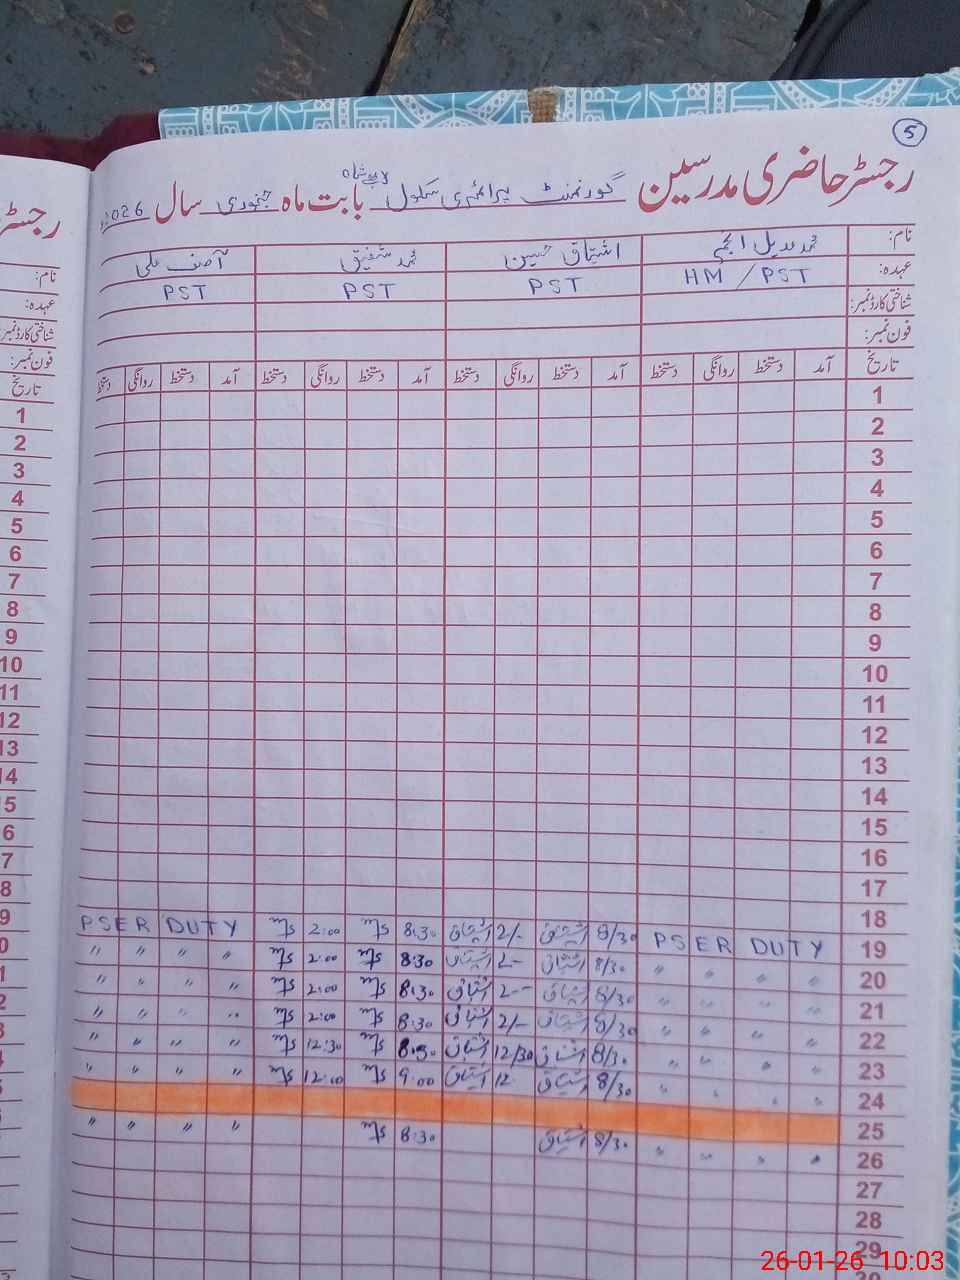 5
رجسٹر حاضری مدرسین گورنمنٹ پرائمری سکول بابت ماہ جنوری سال 2026
نام: محمد عدیل انجم اشتیاق حسین محمد شفیق آصف علی
عہدہ: HM / PST PST PST PST
شناختی کارڈ نمبر:
فون نمبر:
تاریخ آمد دستخط روانگی دستخط آمد دستخط روانگی دستخط آمد دستخط روانگی دستخط آمد دستخط روانگی دستخط
1
2
3
4
5
6
7
8
9
10
11
12
13
14
15
16
17
18
19 PSER DUTY 8/30 اشتیاق 2/- اشتیاق 8:30 2:00 PSER DUTY
20 " " " " 8/30 اشتیاق 2- اشتیاق 8:30 2:00 " " " "
21 " " " " 8/30 اشتیاق 2-- اشتیاق 8:30 2:00 " " " "
22 " " " " 8/30 اشتیاق 2/- اشتیاق 8:30 2:00 " " " "
23 " " " " 8/30 اشتیاق 12/30 اشتیاق 8:30 12:30 " " " "
24 " " " " 8/30 اشتیاق 12 اشتیاق 9:00 12:00 " " " "
25
26 " " " " 8/30 اشتیاق 8:30 " " " "
27
28
29
30
رجسٹر
نام:
عہدہ:
شناختی کارڈ نمبر:
فون نمبر:
تاریخ
1
2
3
4
5
6
7
8
9
10
11
12
13
14
26-01-26 10:03